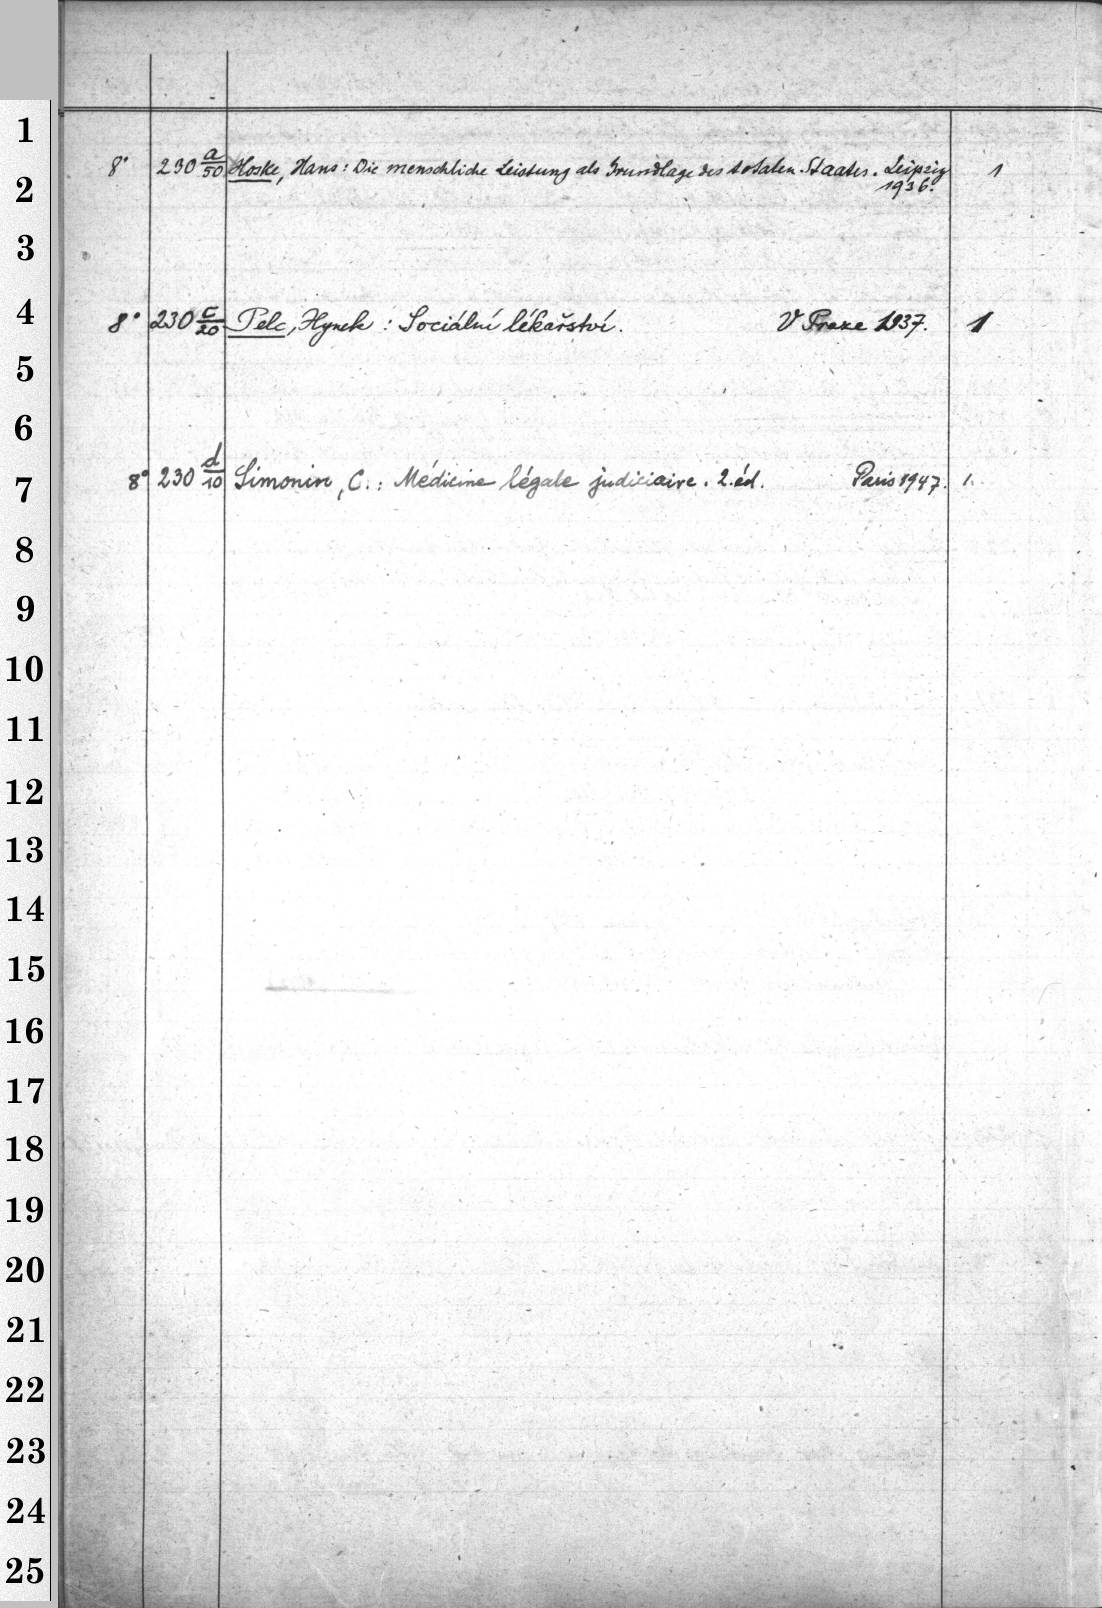 1
8° 230 a/50 Hoske, Hans: Die menschliche Leistung als Grundlage des totalen Staates. Leipzig
2
1936. 1
3
4
8° 230 c/20 Pelc, Hynek: Sociální lékařství. V Praze 1937. 1
5
6
7
8° 230 d/10 Simonin, C.: Médicine légale judiciaire. 2. éd. Paris 1947. 1.
8
9
10
11
12
13
14
15
16
17
18
19
20
21
22
23
24
25